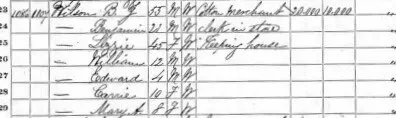 23 1086 1107 Wilson B F 55 M W Cotton merchant 20,000 10,000
24 — Benjamin 22 M W Clerk in store
25 — Lizzie 45 F W Keeping house
26 — William 12 M W
27 — Edward 4 M W
28 — Carrie 10 F W
29 — Mary A 8 F W